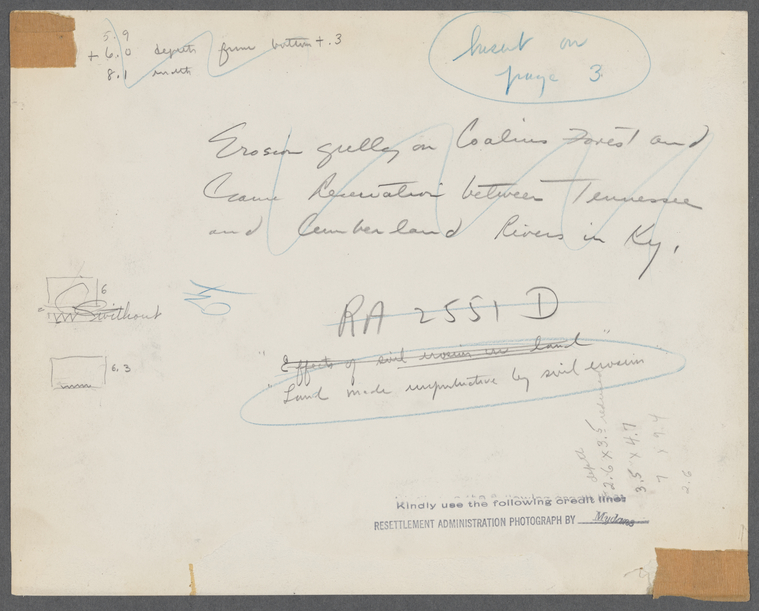 5.9
+ 6.0 depth from bottom + .3
8.1 width
Insert on
page 3
Erosion gulley on Coalins Forest and
Game Reservation between Tennessee
and Cumberland Rivers in Ky.
6
without
RA 2551 D
"Effects of soil erosion on land"
6.3
"Land made unproductive by soil erosion"
depth
2.6 x 3.5 reduced
3.5 x 4.7
7 x 9.4
2.6
Kindly use the following credit line:
RESETTLEMENT ADMINISTRATION PHOTOGRAPH BY Mydans